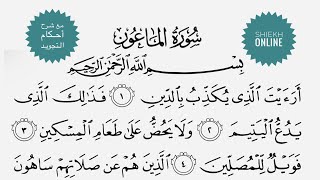 مع شرح
أحكام
التجويد
SHIEKH
ONLINE
سُورَةُ المَاعُونِ
بِسْمِ اللَّهِ الرَّحْمَٰنِ الرَّحِيمِ
أَرَءَيْتَ ٱلَّذِى يُكَذِّبُ بِٱلدِّينِ ١ فَذَٰلِكَ ٱلَّذِى
يَدُعُّ ٱلْيَتِيمَ ٢ وَلَا يَحُضُّ عَلَىٰ طَعَامِ ٱلْمِسْكِينِ ٣
فَوَيْلٌ لِّلْمُصَلِّينَ ٤ ٱلَّذِينَ هُمْ عَن صَلَاتِهِمْ سَاهُونَ